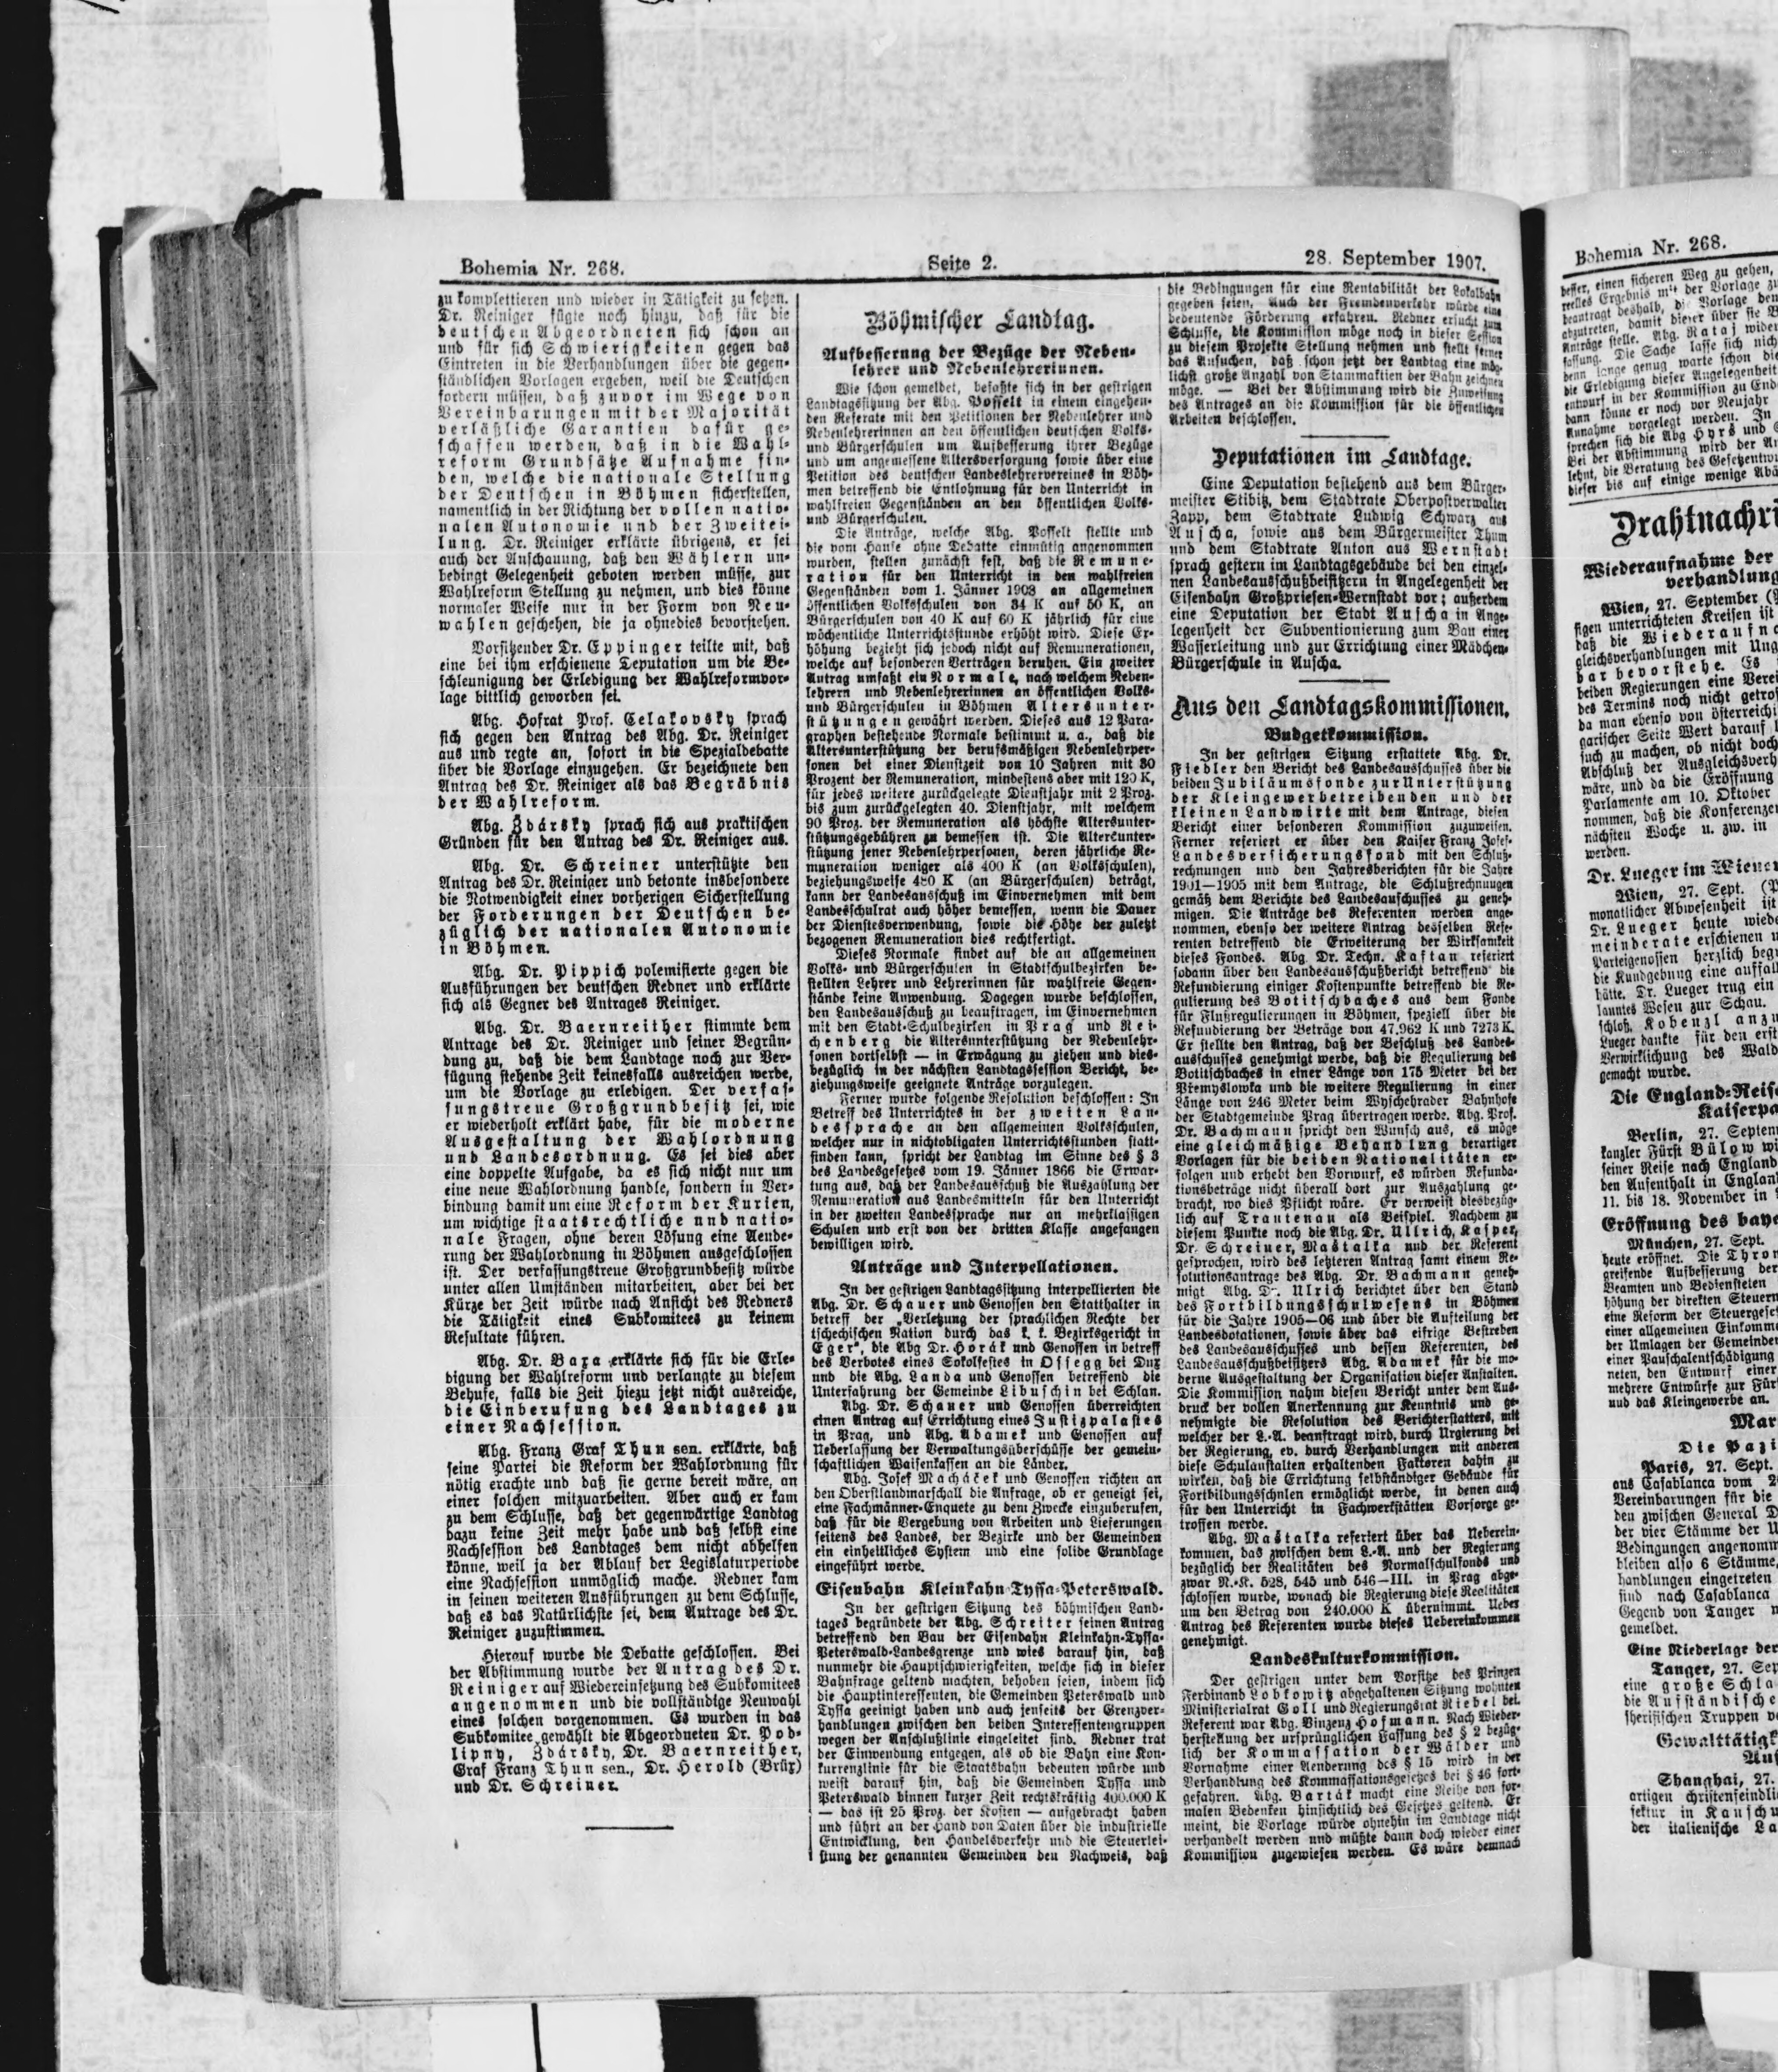 Bohemia Nr. 268.
Seite 2.
28. September 1907.
zu komplettieren und wieder in Tätigkeit zu setzen.
Dr. Reiniger fügte noch hinzu, daß für die
deutschen Abgeordneten sich schon an
und für sich Schwierigkeiten gegen das
Eintreten in die Verhandlungen über die gegen-
ständlichen Vorlagen ergeben, weil die Deutschen
fordern müssen, daß zuvor im Wege von
Vereinbarungen mit der Majorität
verläßliche Garantien dafür ge-
schaffen werden, daß in die Wahl-
reform Grundsätze Aufnahme fin-
den, welche die nationale Stellung
der Deutschen in Böhmen sicherstellen,
namentlich in der Richtung der vollen natio-
nalen Autonomie und der Zweitei-
lung. Dr. Reiniger erklärte übrigens, er sei
auch der Anschauung, daß den Wählern un-
bedingt Gelegenheit geboten werden müsse, zur
Wahlreform Stellung zu nehmen, und dies könne
normaler Weise nur in der Form von Neu-
wahlen geschehen, die ja ohnedies bevorstehen.
Vorsitzender Dr. Eppinger teilte mit, daß
eine bei ihm erschienene Deputation um die Be-
schleunigung der Erledigung der Wahlreformvor-
lage bittlich geworden sei.
Abg. Hofrat Prof. Celakovsky sprach
sich gegen den Antrag des Abg. Dr. Reiniger
aus und regte an, sofort in die Spezialdebatte
über die Vorlage einzugehen. Er bezeichnete den
Antrag des Dr. Reiniger als das Begräbnis
der Wahlreform.
Abg. Žďársky sprach sich aus praktischen
Gründen für den Antrag des Dr. Reiniger aus.
Abg. Dr. Schreiner unterstützte den
Antrag des Dr. Reiniger und betonte insbesondere
die Notwendigkeit einer vorherigen Sicherstellung
der Forderungen der Deutschen be-
züglich der nationalen Autonomie
in Böhmen.
Abg. Dr. Pippich polemisierte gegen die
Ausführungen der deutschen Redner und erklärte
sich als Gegner des Antrages Reiniger.
Abg. Dr. Baernreither stimmte dem
Antrage des Dr. Reiniger und seiner Begrün-
dung zu, daß die dem Landtage noch zur Ver-
fügung stehende Zeit keinesfalls ausreichen werde,
um die Vorlage zu erledigen. Der verfas-
sungstreue Großgrundbesitz sei, wie
er wiederholt erklärt habe, für die moderne
Ausgestaltung der Wahlordnung
und Landesordnung. Es sei dies aber
eine doppelte Aufgabe, da es sich nicht nur um
eine neue Wahlordnung handle, sondern in Ver-
bindung damit um eine Reform der Kurien,
um wichtige staatsrechtliche und natio-
nale Fragen, ohne deren Lösung eine Aende-
rung der Wahlordnung in Böhmen ausgeschlossen
ist. Der verfassungstreue Großgrundbesitz würde
unter allen Umständen mitarbeiten, aber bei der
Kürze der Zeit würde nach Ansicht des Redners
die Tätigkeit eines Subkomitees zu keinem
Resultate führen.
Abg. Dr. Baxa erklärte sich für die Erle-
digung der Wahlreform und verlangte zu diesem
Behufe, falls die Zeit hiezu jetzt nicht ausreiche,
die Einberufung des Landtages zu
einer Nachsession.
Abg. Franz Graf Thun sen. erklärte, daß
seine Partei die Reform der Wahlordnung für
nötig erachte und daß sie gerne bereit wäre, an
einer solchen mitzuarbeiten. Aber auch er kam
zu dem Schlusse, daß der gegenwärtige Landtag
dazu keine Zeit mehr habe und daß selbst eine
Nachsession des Landtages dem nicht abhelfen
könne, weil ja der Ablauf der Legislaturperiode
eine Nachsession unmöglich mache. Redner kam
in seinen weiteren Ausführungen zu dem Schlusse,
daß es das Natürlichste sei, dem Antrage des Dr.
Reiniger zuzustimmen.
Hierauf wurde die Debatte geschlossen. Bei
der Abstimmung wurde der Antrag des Dr.
Reiniger auf Wiedereinsetzung des Subkomitees
angenommen und die vollständige Neuwahl
eines solchen vorgenommen. Es wurden in das
Subkomitee gewählt die Abgeordneten Dr. Pod-
lipny, Žďársky, Dr. Baernreither,
Graf Franz Thun sen., Dr. Herold (Brüx)
und Dr. Schreiner.
Böhmischer Landtag.
Aufbesserung der Bezüge der Neben-
lehrer und Nebenlehrerinnen.
Wie schon gemeldet, befaßte sich in der gestrigen
Landtagssitzung der Abg. Posselt in einem eingehen-
den Referate mit den Petitionen der Nebenlehrer und
Nebenlehrerinnen an den öffentlichen deutschen Volks-
und Bürgerschulen um Aufbesserung ihrer Bezüge
und um angemessene Altersversorgung sowie über eine
Petition des deutschen Landeslehrervereines in Böh-
men betreffend die Entlohnung für den Unterricht in
wahlfreien Gegenständen an den öffentlichen Volks-
und Bürgerschulen.
Die Anträge, welche Abg. Posselt stellte und
die vom Hause ohne Debatte einmütig angenommen
wurden, stellen zunächst fest, daß die Remune-
ration für den Unterricht in den wahlfreien
Gegenständen vom 1. Jänner 1908 an allgemeinen
öffentlichen Volksschulen von 34 K auf 50 K, an
Bürgerschulen von 40 K auf 60 K jährlich für eine
wöchentliche Unterrichtsstunde erhöht wird. Diese Er-
höhung bezieht sich jedoch nicht auf Remunerationen,
welche auf besonderen Verträgen beruhen. Ein zweiter
Antrag umfaßt ein Normale, nach welchem Neben-
lehrern und Nebenlehrerinnen an öffentlichen Volks-
und Bürgerschulen in Böhmen Altersunter-
stützungen gewährt werden. Dieses aus 12 Para-
graphen bestehende Normale bestimmt u. a., daß die
Altersunterstützung der berufsmäßigen Nebenlehrper-
sonen bei einer Dienstzeit von 10 Jahren mit 30
Prozent der Remuneration, mindestens aber mit 120 K,
für jedes weitere zurückgelegte Dienstjahr mit 2 Proz.
bis zum zurückgelegten 40. Dienstjahr, mit welchem
90 Proz. der Remuneration als höchste Altersunter-
stützungsgebühren zu bemessen ist. Die Altersunter-
stützung jener Nebenlehrpersonen, deren jährliche Re-
muneration weniger als 400 K (an Volksschulen),
beziehungsweise 480 K (an Bürgerschulen) beträgt,
kann der Landesausschuß im Einvernehmen mit dem
Landesschulrat auch höher bemessen, wenn die Dauer
der Dienstesverwendung, sowie die Höhe der zuletzt
bezogenen Remuneration dies rechtfertigt.
Dieses Normale findet auf die an allgemeinen
Volks- und Bürgerschulen in Stadtschulbezirken be-
stellten Lehrer und Lehrerinnen für wahlfreie Gegen-
stände keine Anwendung. Dagegen wurde beschlossen,
den Landesausschuß zu beauftragen, im Einvernehmen
mit den Stadt-Schulbezirken in Prag und Rei-
chenberg die Altersunterstützung der Nebenlehr-
sonen dortselbst — in Erwägung zu ziehen und dies-
bezüglich in der nächsten Landtagssession Bericht, be-
ziehungsweise geeignete Anträge vorzulegen.
Ferner wurde folgende Resolution beschlossen: In
Betreff des Unterrichtes in der zweiten Lan-
dessprache an den allgemeinen Volksschulen,
welcher nur in nichtobligaten Unterrichtsstunden statt-
finden kann, spricht der Landtag im Sinne des § 3
des Landesgesetzes vom 19. Jänner 1866 die Erwar-
tung aus, daß der Landesausschuß die Auszahlung der
Remuneration aus Landesmitteln für den Unterricht
in der zweiten Landessprache nur an mehrklassigen
Schulen und erst von der dritten Klasse angefangen
bewilligen wird.
Anträge und Interpellationen.
In der gestrigen Landtagssitzung interpellierten die
Abg. Dr. Schauer und Genossen den Statthalter in
betreff der „Verletzung der sprachlichen Rechte der
tschechischen Nation durch das k. k. Bezirksgericht in
Eger", die Abg Dr. Horák und Genossen in betreff
des Verbotes eines Sokolfestes in Ossegg bei Dux
und die Abg. Landa und Genossen betreffend die
Unterfahrung der Gemeinde Libuschin bei Schlan.
Abg. Dr. Schauer und Genossen überreichten
einen Antrag auf Errichtung eines Justizpalastes
in Prag, und Abg. Adamek und Genossen auf
Ueberlassung der Verwaltungsüberschüsse der gemein-
schaftlichen Waisenkassen an die Länder.
Abg. Josef Macháček und Genossen richten an
den Oberstlandmarschall die Anfrage, ob er geneigt sei,
eine Fachmänner-Enquete zu dem Zwecke einzuberufen,
daß für die Vergebung von Arbeiten und Lieferungen
seitens des Landes, der Bezirke und der Gemeinden
ein einheitliches System und eine solide Grundlage
eingeführt werde.
Eisenbahn Kleinkahn-Tyssa-Peterswald.
In der gestrigen Sitzung des böhmischen Land-
tages begründete der Abg. Schreiter seinen Antrag
betreffend den Bau der Eisenbahn Kleinkahn-Tyssa-
Peterswald-Landesgrenze und wies darauf hin, daß
nunmehr die Hauptschwierigkeiten, welche sich in dieser
Bahnfrage geltend machten, behoben seien, indem sich
die Hauptinteressenten, die Gemeinden Peterswald und
Tyssa geeinigt haben und auch jenseits der Grenzver-
handlungen zwischen den beiden Interessentengruppen
wegen der Anschlußlinie eingeleitet sind. Redner trat
der Einwendung entgegen, als ob die Bahn eine Kon-
kurrenzlinie für die Staatsbahn bedeuten würde und
weist darauf hin, daß die Gemeinden Tyssa und
Peterswald binnen kurzer Zeit rechtskräftig 400.000 K
— das ist 25 Proz. der Kosten — aufgebracht haben
und führt an der Hand von Daten über die industrielle
Entwicklung, den Handelsverkehr und die Steuerlei-
stung der genannten Gemeinden den Nachweis, daß
die Bedingungen für eine Rentabilität der Lokalbahn
gegeben seien. Auch der Fremdenverkehr würde eine
bedeutende Förderung erfahren. Redner ersucht zum
Schlusse, die Kommission möge noch in dieser Session
zu diesem Projekte Stellung nehmen und stellt ferner
das Ansuchen, daß schon jetzt der Landtag eine mög-
lichst große Anzahl von Stammaktien der Bahn zeichnen
möge. — Bei der Abstimmung wird die Zuweisung
des Antrages an die Kommission für die öffentlichen
Arbeiten beschlossen.
Deputationen im Landtage.
Eine Deputation bestehend aus dem Bürger-
meister Stibitz, dem Stadtrate Oberpostverwalter
Zapp, dem Stadtrate Ludwig Schwarz aus
Auscha, sowie aus dem Bürgermeister Thum
und dem Stadtrate Anton aus Wernstadt
sprach gestern im Landtagsgebäude bei den einzel-
nen Landesausschußbeisitzern in Angelegenheit der
Eisenbahn Großpriesen-Wernstadt vor; außerdem
eine Deputation der Stadt Auscha in Ange-
legenheit der Subventionierung zum Bau einer
Wasserleitung und zur Errichtung einer Mädchen-
Bürgerschule in Auscha.
Aus den Landtagskommissionen.
Budgetkommission.
In der gestrigen Sitzung erstattete Abg. Dr.
Fiedler den Bericht des Landesausschusses über die
beiden Jubiläumsfonde zur Unterstützung
der Kleingewerbetreibenden und der
kleinen Landwirte mit dem Antrage, diesen
Bericht einer besonderen Kommission zuzuweisen.
Ferner referiert er über den Kaiser Franz Josef-
Landesversicherungsfond mit den Schluß-
rechnungen und den Jahresberichten für die Jahre
1901—1905 mit dem Antrage, die Schlußrechnungen
gemäß dem Berichte des Landesauschusses zu geneh-
migen. Die Anträge des Referenten werden ange-
nommen, ebenso der weitere Antrag desselben Refe-
renten betreffend die Erweiterung der Wirksamkeit
dieses Fondes. Abg. Dr. Techn. Kaftan referiert
sodann über den Landesausschußbericht betreffend die
Refundierung einiger Kostenpunkte betreffend die Re-
gulierung des Botitschbaches aus dem Fonde
für Flußregulierungen in Böhmen, speziell über die
Refundierung der Beträge von 47.962 K und 7273 K.
Er stellte den Antrag, daß der Beschluß des Landes-
ausschusses genehmigt werde, daß die Regulierung des
Botitschbaches in einer Länge von 175 Meter bei der
Přemyslowka und die weitere Regulierung in einer
Länge von 246 Meter beim Wyschehrader Bahnhofe
der Stadtgemeinde Prag übertragen werde. Abg. Prof.
Dr. Bachmann spricht den Wunsch aus, es möge
eine gleichmäßige Behandlung derartiger
Vorlagen für die beiden Nationalitäten er-
folgen und erhebt den Vorwurf, es würden Refunda-
tionsbeträge nicht überall dort zur Auszahlung ge-
bracht, wo dies Pflicht wäre. Er verweist diesbezüg-
lich auf Trautenau als Beispiel. Nachdem zu
diesem Punkte noch die Abg. Dr. Ullrich, Kasper,
Dr. Schreiner, Maštalka und der Referent
gesprochen, wird des letzteren Antrag samt einem Re-
solutionsantrage des Abg. Dr. Bachmann geneh-
migt Abg. Dr. Ulrich berichtet über den Stand
des Fortbildungsschulwesens in Böhmen
für die Jahre 1905—06 und über die Aufteilung der
Landesdotationen, sowie über das eifrige Bestreben
des Landesausschusses und dessen Referenten, des
Landesausschußbeisitzers Abg. Adamek für die mo-
derne Ausgestaltung der Organisation dieser Anstalten.
Die Kommission nahm diesen Bericht unter dem Aus-
druck der vollen Anerkennung zur Kenntnis und ge-
nehmigte die Resolution des Berichterstatters, mit
welcher der L.-A. beauftragt wird, durch Urgierung bei
der Regierung, ev. durch Verhandlungen mit anderen
diese Schulanstalten erhaltenden Faktoren dahin zu
wirken, daß die Errichtung selbständiger Gebäude für
Fortbildungsschulen ermöglicht werde, in denen auch
für den Unterricht in Fachwerkstätten Vorsorge ge-
troffen werde.
Abg. Maštalka referiert über das Ueberein-
kommen, das zwischen dem L.-A. und der Regierung
bezüglich der Realitäten des Normalschulfonds und
zwar N.-K. 528, 545 und 546—III. in Prag abge-
schlossen wurde, wonach die Regierung diese Realitäten
um den Betrag von 240.000 K übernimmt. Ueber
Antrag des Referenten wurde dieses Uebereinkommen
genehmigt.
Landeskulturkommission.
Der gestrigen unter dem Vorsitze des Prinzen
Ferdinand Lobkowitz abgehaltenen Sitzung wohnten
Ministerialrat Goll und Regierungsrat Riebel bei.
Referent war Abg. Vinzenz Hofmann. Nach Wieder-
herstellung der ursprünglichen Fassung des § 2 bezüg-
lich der Kommassation der Wälder und
Vornahme einer Aenderung des § 15 wird in der
Verhandlung des Kommassationsgesetzes bei § 46 fort-
gefahren. Abg. Barták macht eine Reihe von for-
malen Bedenken hinsichtlich des Gesetzes geltend. Er
meint, die Vorlage würde ohnehin im Landtage nicht
verhandelt werden und müßte dann doch wieder einer
Kommission zugewiesen werden. Es wäre demnach
Bohemia Nr. 268.
besser, einen sicheren Weg zu gehen,
relles Ergebnis mit der Vorlage zu
beantragt deshalb, die Vorlage den
abzutreten, damit dieser über sie
Anträge stelle. Abg. Rataj wider
fassung. Die Sache lasse sich nich
denn lange genug warte schon die
die Erledigung dieser Angelegenheit
entwurf in der Kommission zu End
dann könne er noch vor Neujahr
Annahme vorgelegt werden. In
sprechen sich die Abg Hyrs und
Bei der Abstimmung wird der An
lehnt, die Beratung des Gesetzentw
dieser bis auf einige wenige Abä
Drahtnachri
Wiederaufnahme der
verhandlung
Wien, 27. September (
sigen unterrichteten Kreisen ist
daß die Wiederaufna
gleichsverhandlungen mit Ung
bar bevorstehe. Es
beiden Regierungen eine Verei
des Termins noch nicht getrof
da man ebenso von österreichi
garischer Seite Wert darauf
such zu machen, ob nicht doch
Abschluß der Ausgleichsverh
wäre, und da die Eröffnung
Parlamente am 10. Oktober
nommen, daß die Konferenzen
nächsten Woche u. zw. in
werden.
Dr. Lueger im Wiener
Wien, 27. Sept. (P
monatlicher Abwesenheit ist
Dr. Lueger heute wiede
meinderate erschienen u
Parteigenossen herzlich beg
die Kundgebung eine auffal
hätte. Dr. Lueger trug ein
launtes Wesen zur Schau.
schloß. Kobenzl anzu
Lueger dankte für den erst
Verwirklichung des Wald
gemacht wurde.
Die England-Reise
Kaiserpa
Berlin, 27. Septem
kanzler Fürst Bülow wi
seiner Reise nach England
den Aufenthalt in England
11. bis 18. November in
Eröffnung des baye
München, 27. Sept.
heute eröffnet. Die Thron
greifende Aufbesserung der
Beamten und Bediensteten
höhung der direkten Steuern
eine Reform der Steuergeset
einer allgemeinen Einkomme
der Umlagen der Gemeinden
einer Pauschalentschädigung
neten, den Entwurf einer
mehrere Entwürfe zur Für
und das Kleingewerbe an.
Mar
Die Pazi
Paris, 27. Sept.
aus Casablanca vom 2
Vereinbarungen für die
den zwischen General D
der vier Stämme der U
Bedingungen angenomm
bleiben also 6 Stämme,
handlungen eingetreten
sind nach Casablanca
Gegend von Tanger
gemeldet.
Eine Niederlage der
Tanger, 27. Sep
eine große Schla
die Aufständische
sherifischen Truppen
Gewalttätigk
Auf
Shanghai, 27.
artigen christenfeindli
fektur in Kauschu
der italienische La